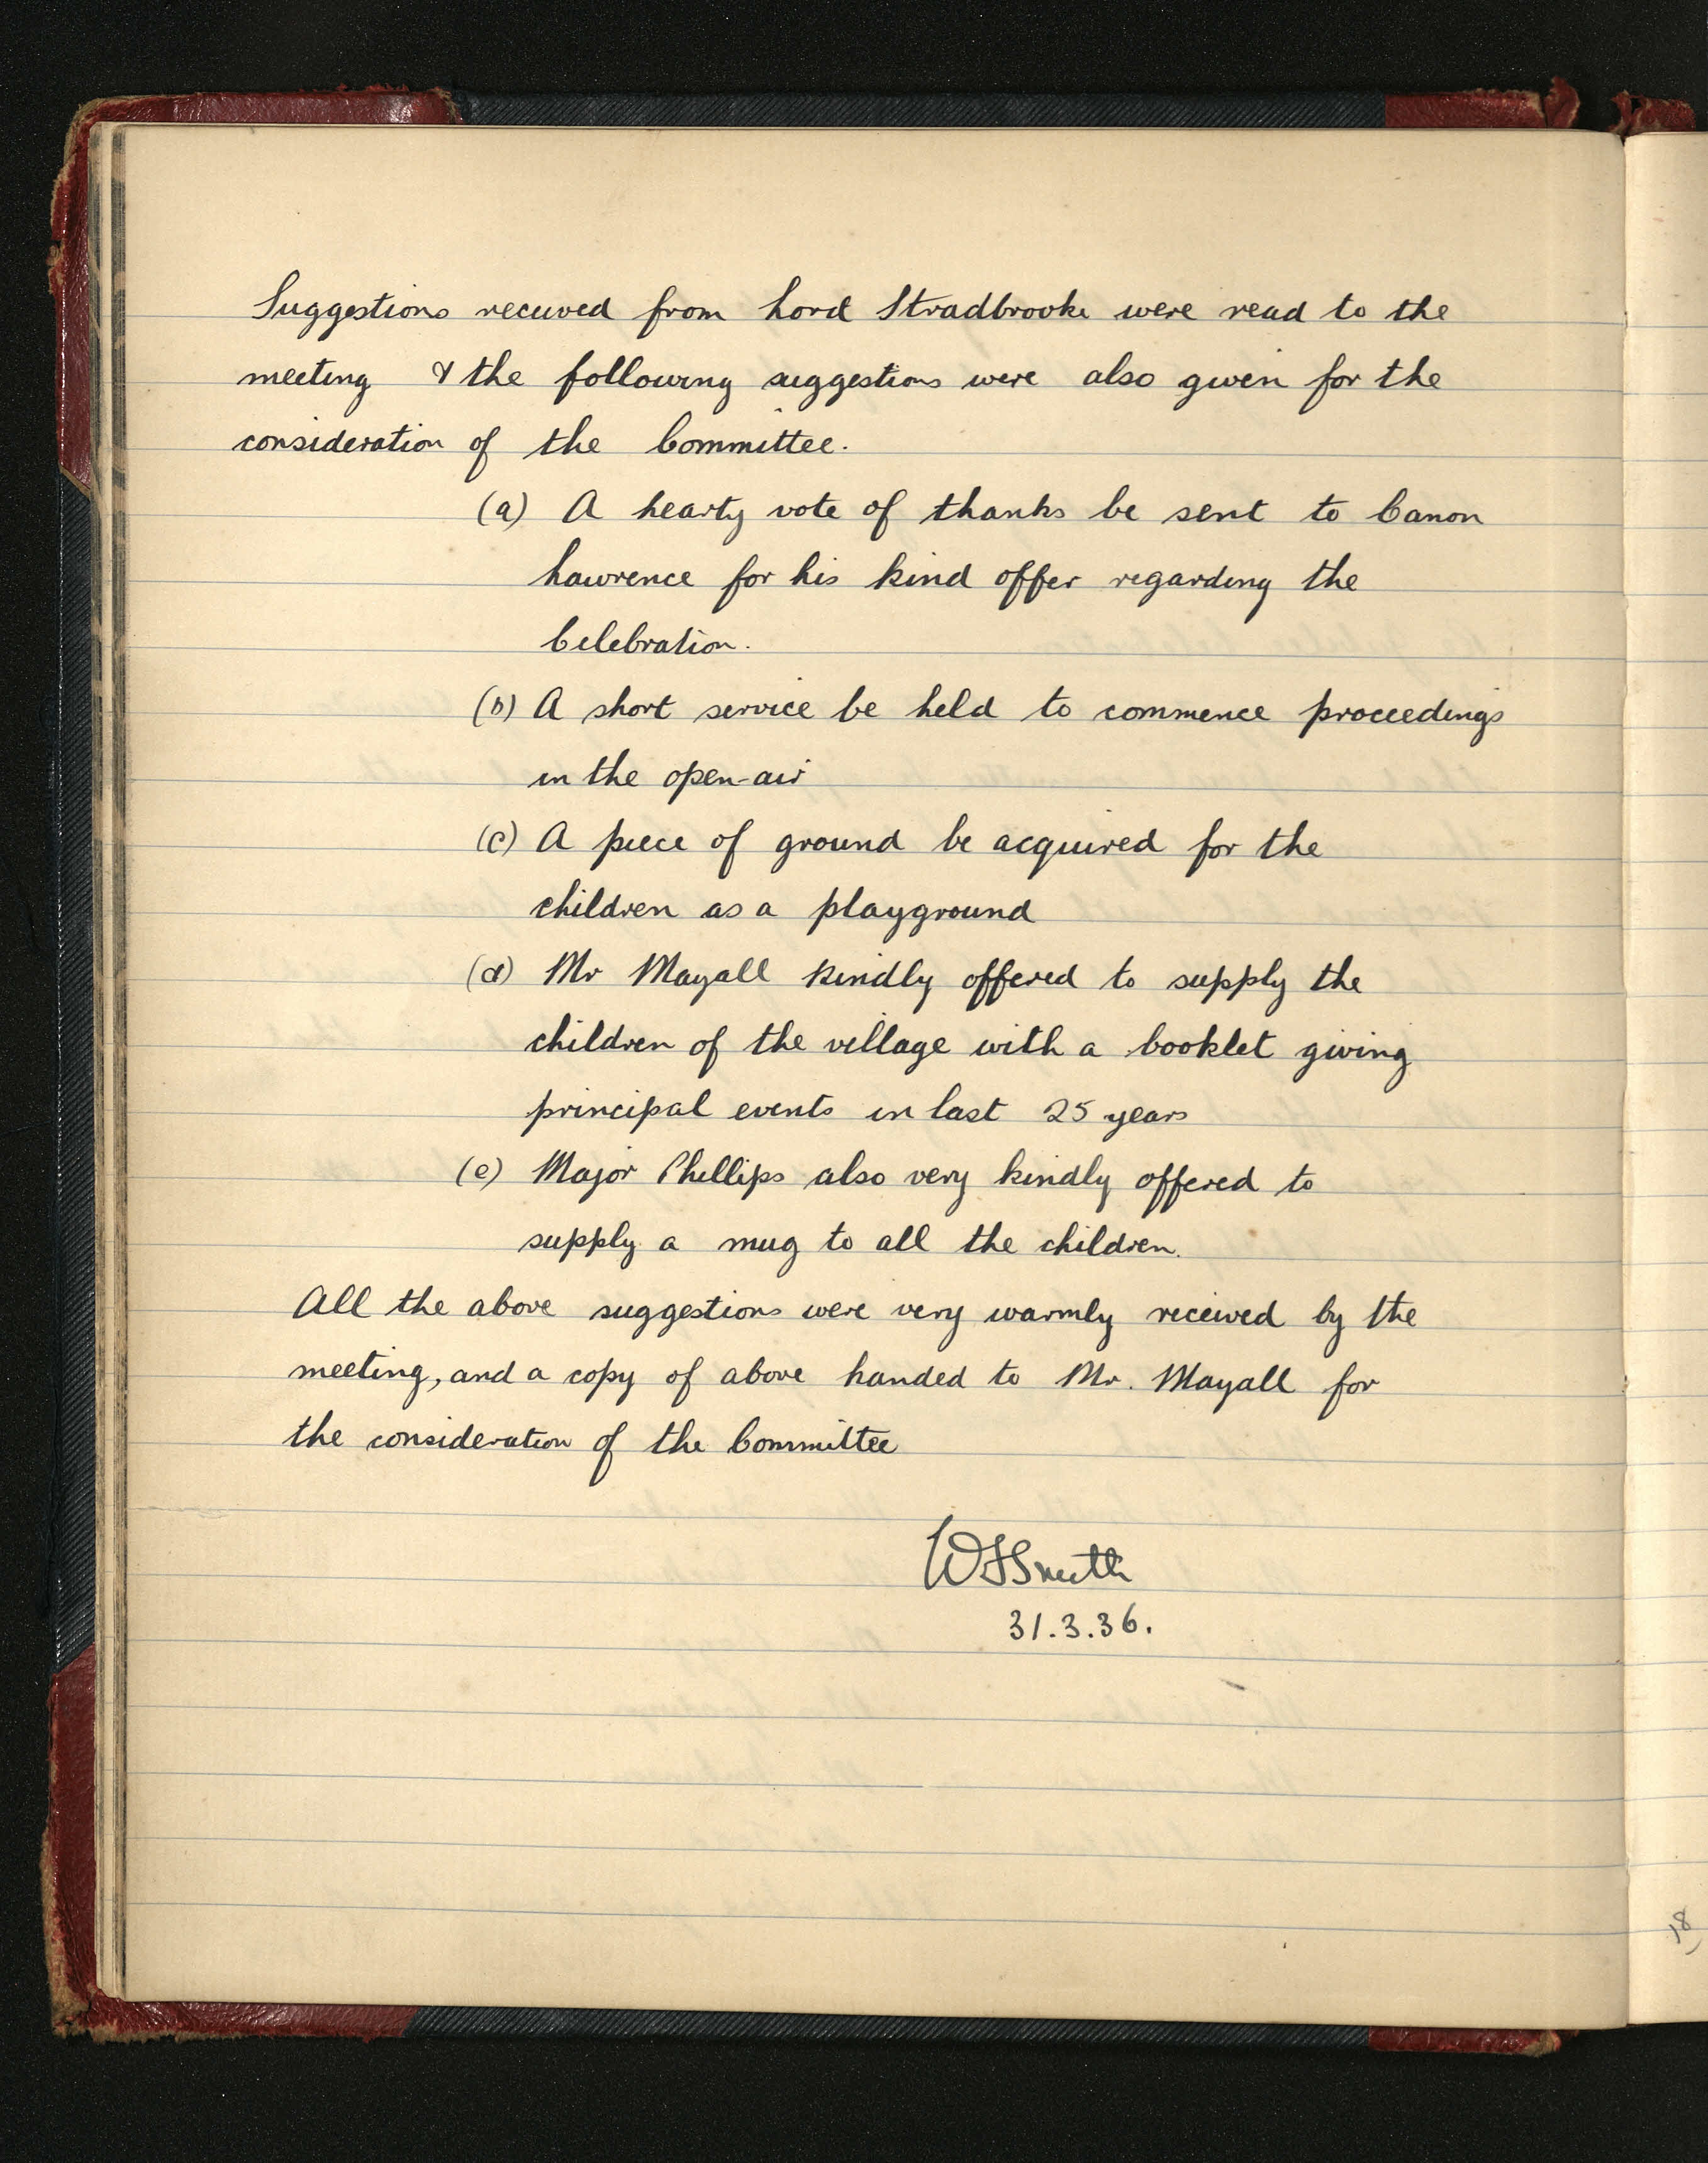 Suggestions received from Lord Stradbrooke were read to the
meeting & the following suggestions were also given for the
consideration of the Committee.
(a) A hearty vote of thanks be sent to Canon
Lawrence for his kind offer regarding the
Celebration.
(b) A short service be held to commence proceedings
in the open-air
(c) A piece of ground be acquired for the
children as a playground
(d) Mr Mayall kindly offered to supply the
children of the village with a booklet giving
principal events in last 25 years
(e) Major Phillips also very kindly offered to
supply a mug to all the children.
All the above suggestions were very warmly received by the
meeting, and a copy of above handed to Mr. Mayall for
the consideration of the Committee
WFSmith
31.3.36.
18